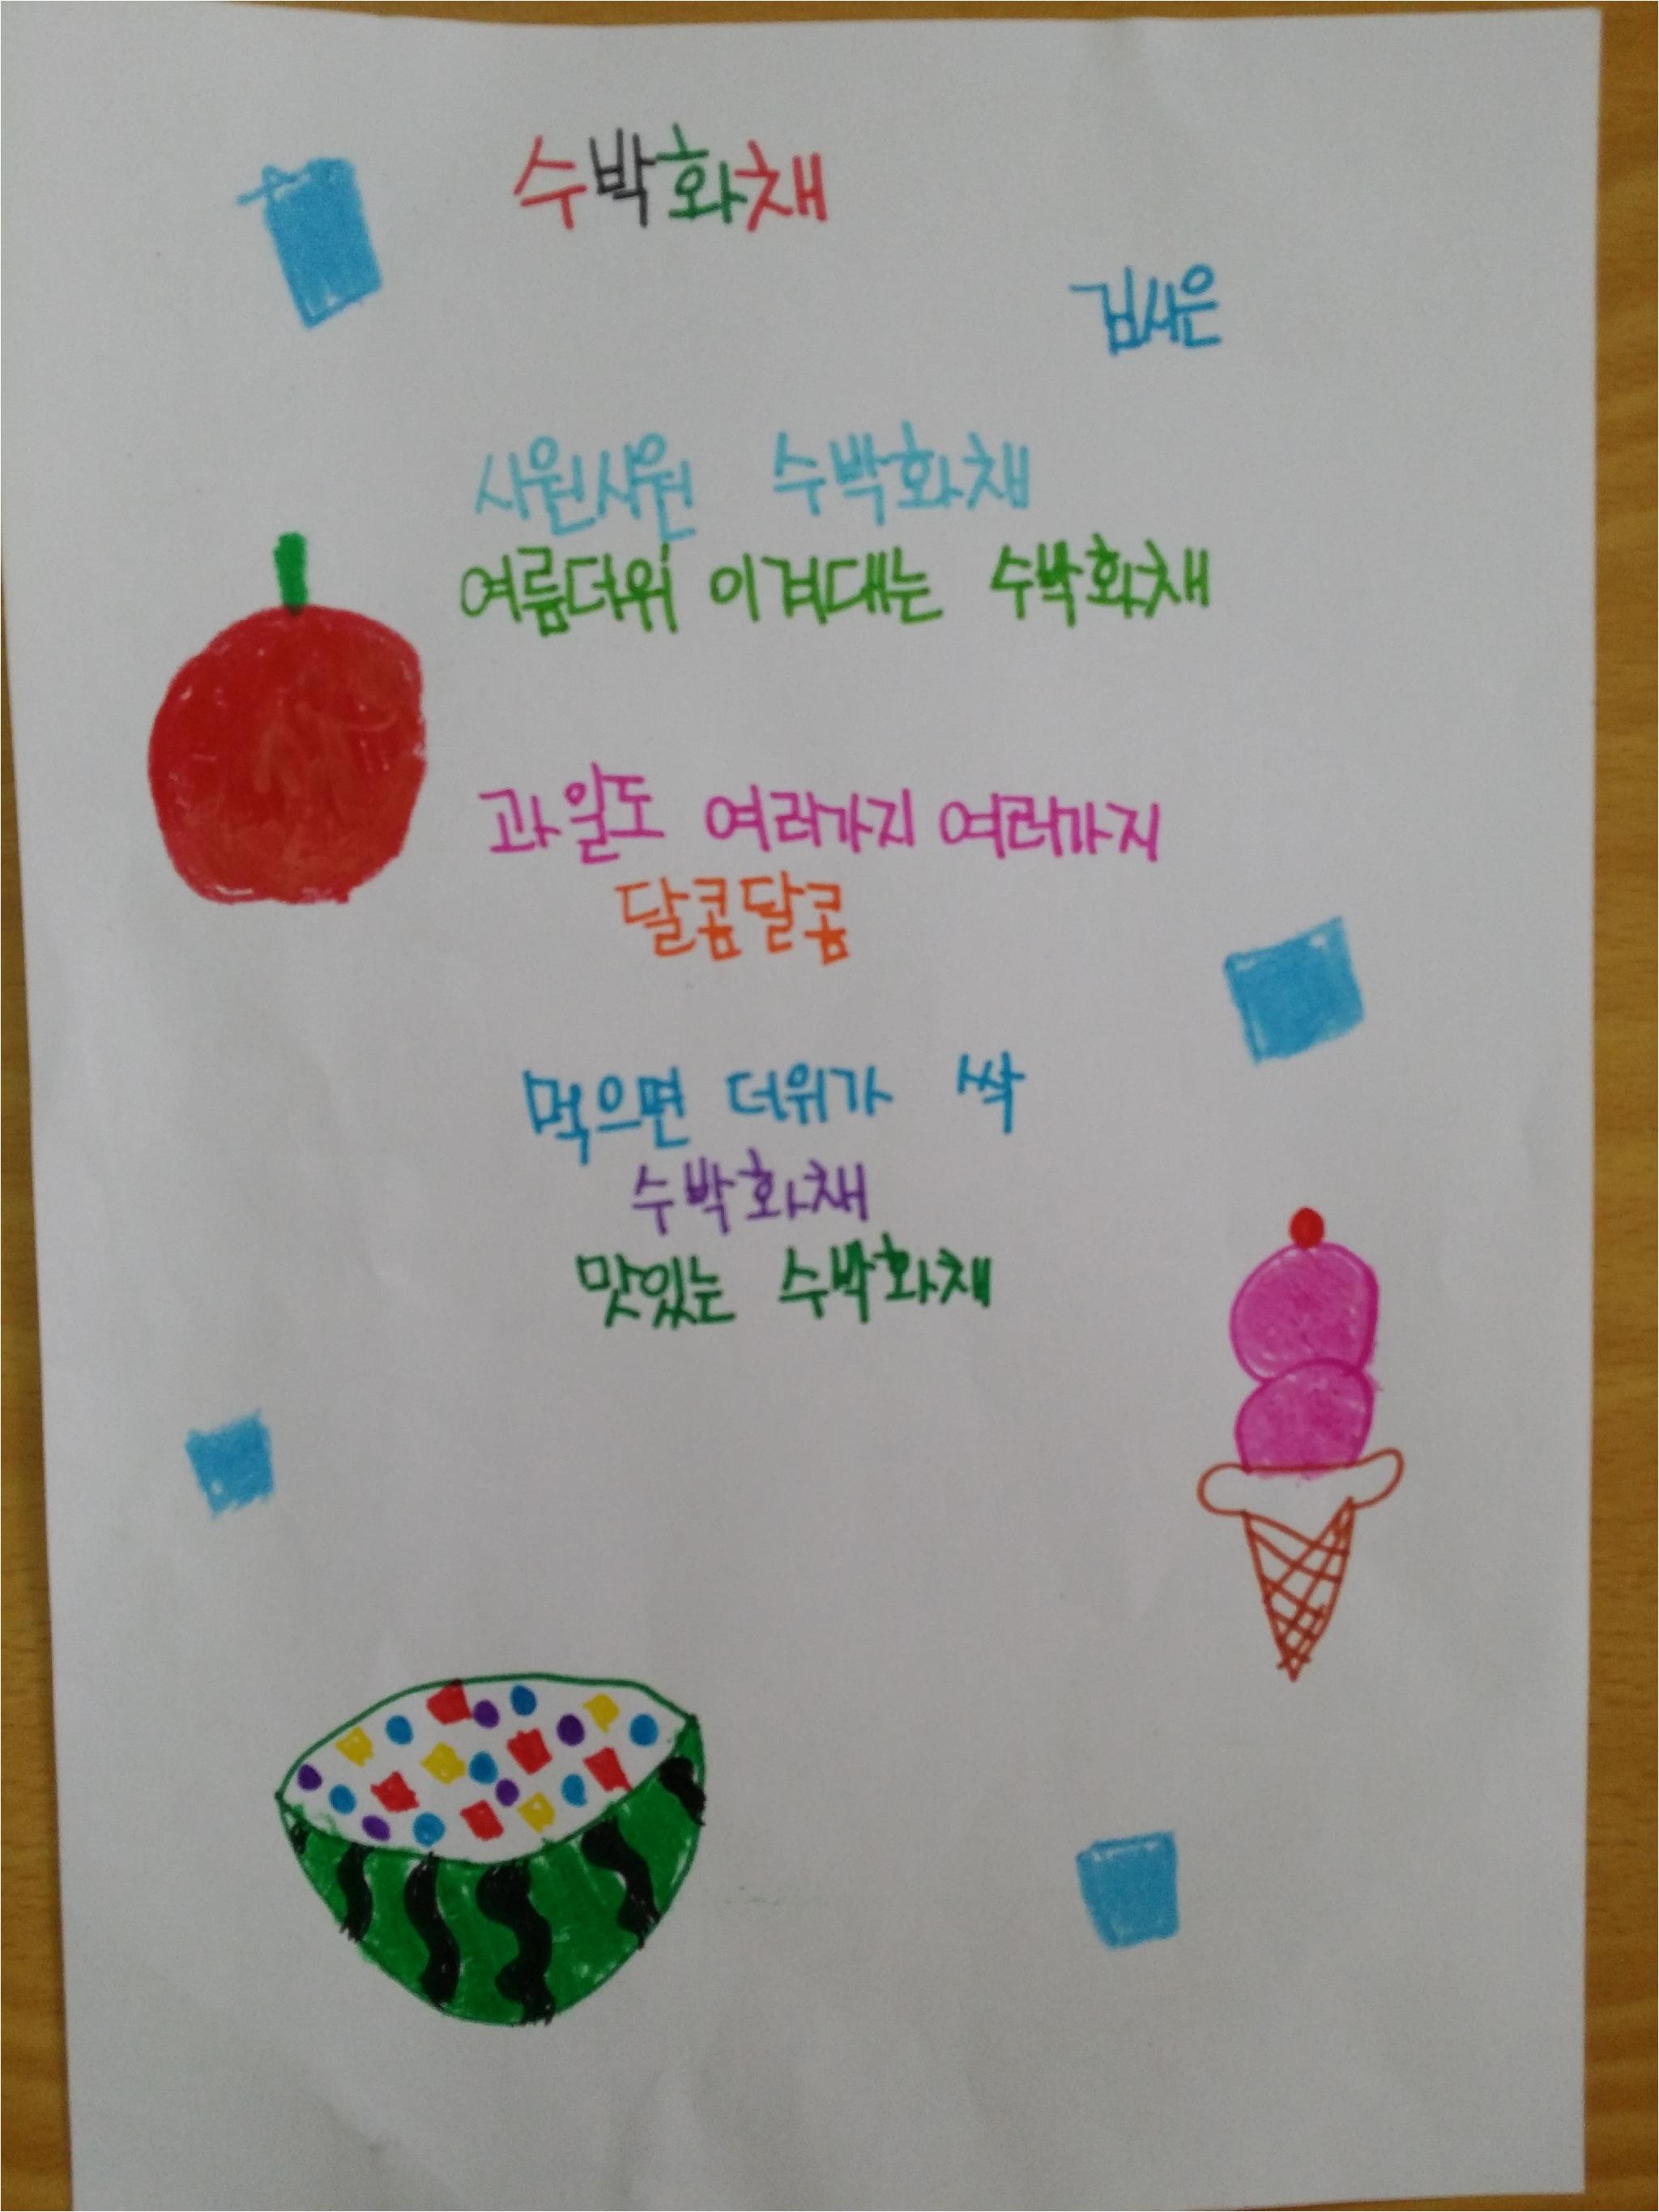 수박화채
김서은
시원시원 수박화채
여름더위 이겨대는 수박화채
과일도 여러가지 여러가지
달콤달콤
먹으면 더위가 싹
수박화채
맛있는 수박화채